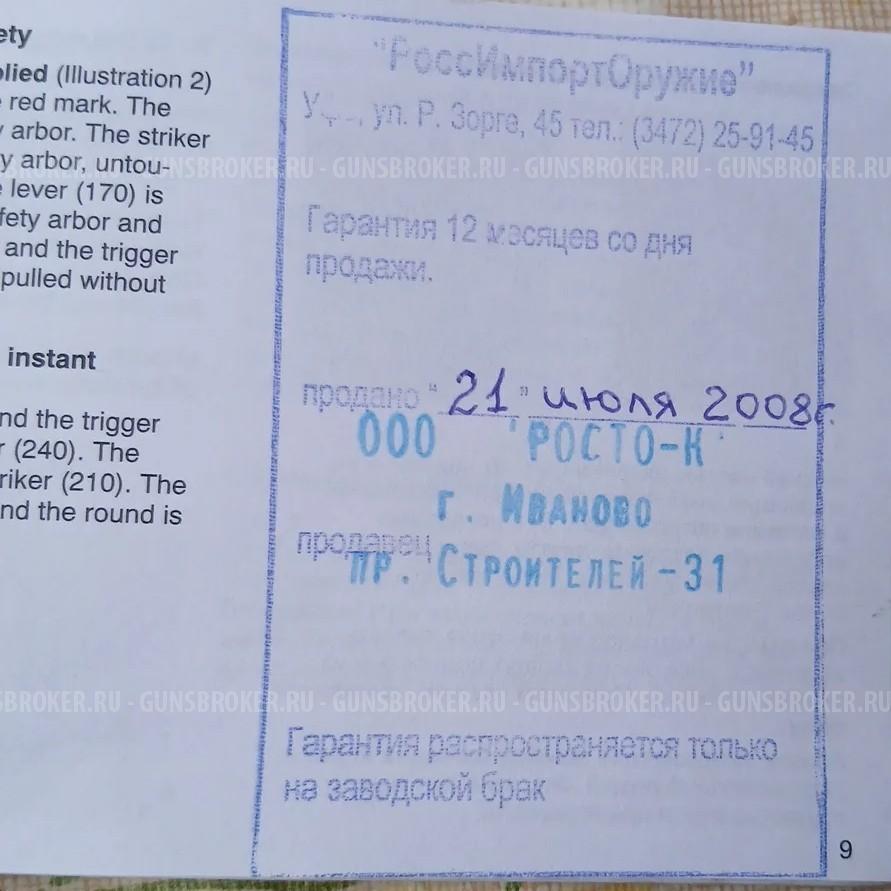 ety
lied (Illustration 2)
red mark. The
arbor. The striker
y arbor, untou-
lever (170) is
fety arbor and
and the trigger
pulled without
instant
nd the trigger
r (240). The
riker (210). The
nd the round is
"РоссИмпортОружие"
ул. Р. Зорге, 45 тел.: (3472) 25-91-45
Гарантия 12 месяцев со дня
продажи.
продано "21" июля 2008г.
ООО "РОСТО-К"
г. Иваново
продавец
пр. Строителей-31
Гарантия распространяется только
на заводской брак
9
GUNSBROKER.RU - GUNSBROKER.RU - GUNSBROKER.RU - GUNSBROKER.RU
GUNSBROKER.RU - GUNSBROKER.RU - GUNSBROKER.RU - GUNSBROKER.RU